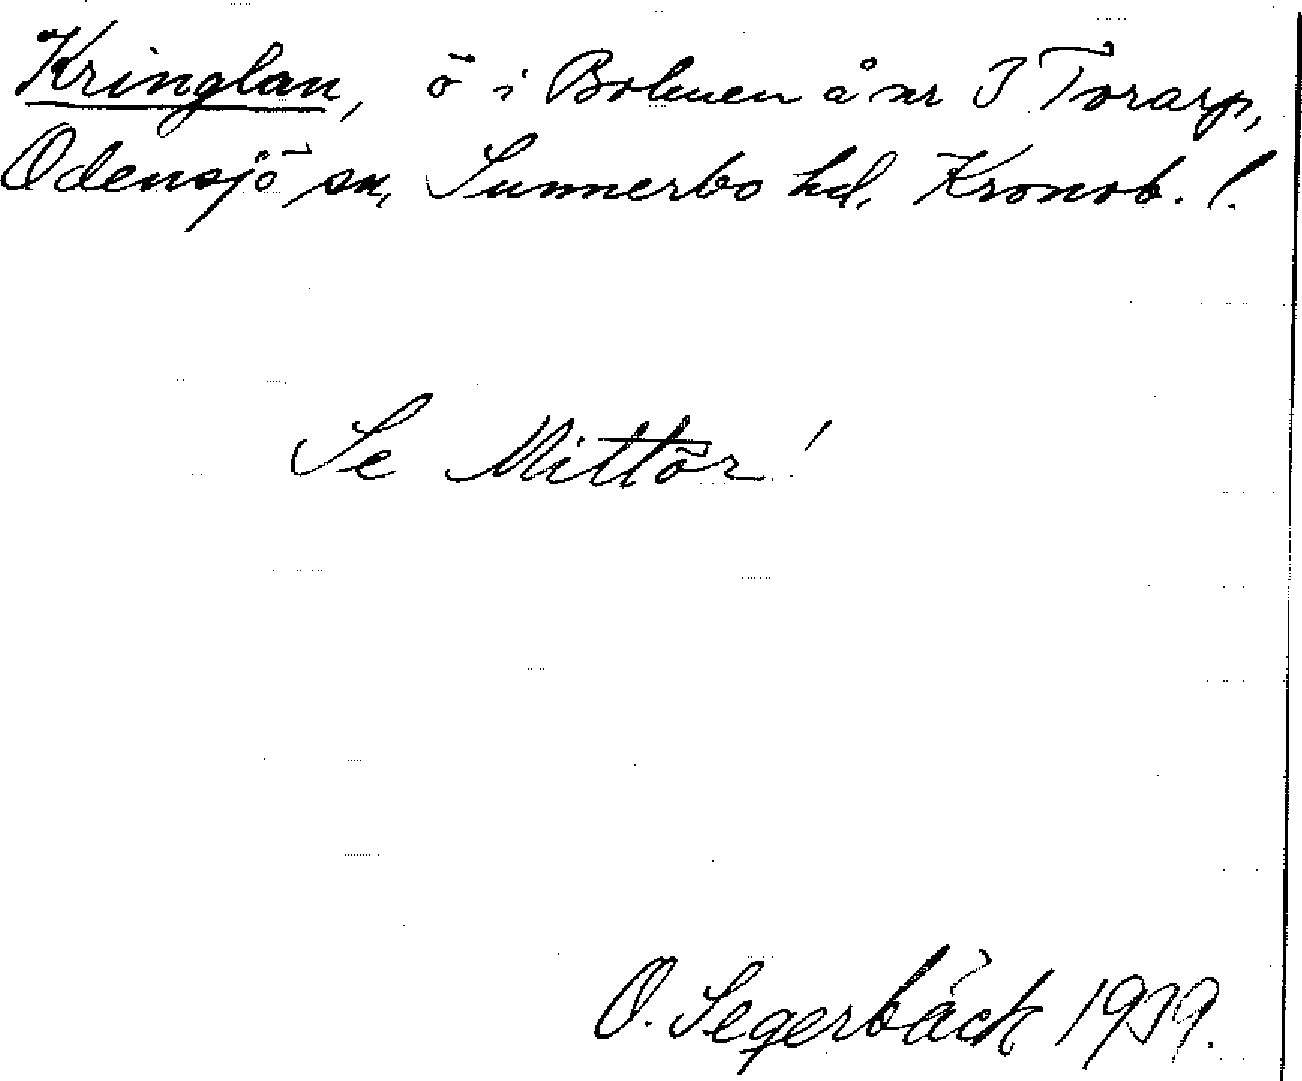 Kringlan, ö i Bolmen å nr 3 Torarp,
Odensjö sn, Sunnerbo hd, Kronob. l.
Se Mittör!
O. Segerbäck 1939.